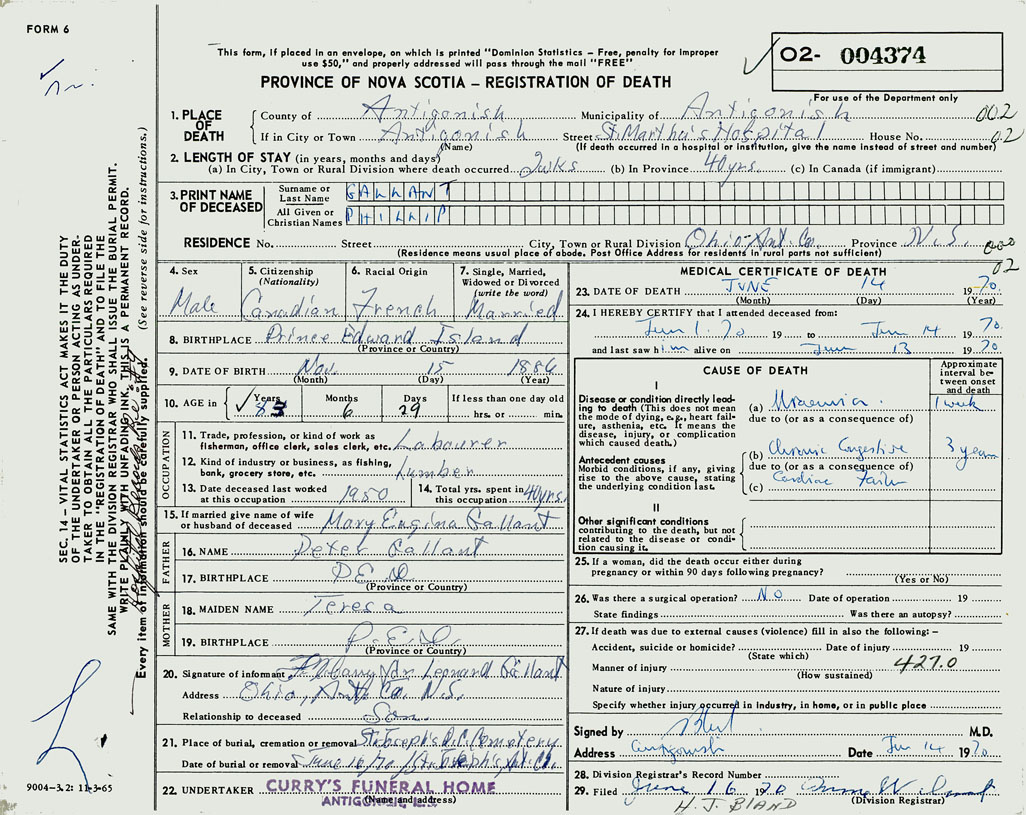 FORM 6
This form, if placed in an envelope, on which is printed "Dominion Statistics – Free, penalty for improper
use $50," and properly addressed will pass through the mail "FREE"
PROVINCE OF NOVA SCOTIA – REGISTRATION OF DEATH
O2- 004374
For use of the Department only
1. PLACE OF DEATH
County of Antigonish Municipality of Antigonish 002
If in City or Town Antigonish Street St. Martha's Hospital House No. 02
(Name) (If death occurred in a hospital or institution, give the name instead of street and number)
2. LENGTH OF STAY (in years, months and days)
(a) In City, Town or Rural Division where death occurred 2 wks (b) In Province 40 yrs. (c) In Canada (if immigrant)
3. PRINT NAME OF DECEASED
Surname or Last Name GALLANT
All Given or Christian Names PHILLIP
RESIDENCE No. Street City, Town or Rural Division Ohio-Ant. Co. Province N.S
(Residence means usual place of abode. Post Office Address for residents in rural parts not sufficient)
02
4. Sex
Male
5. Citizenship (Nationality)
Canadian
6. Racial Origin
French
7. Single, Married, Widowed or Divorced (write the word)
Married
8. BIRTHPLACE Prince Edward Island
(Province or Country)
9. DATE OF BIRTH Nov. 15 1886
(Month) (Day) (Year)
10. AGE in Years 83 Months 6 Days 29 If less than one day old
hrs. or min.
OCCUPATION
11. Trade, profession, or kind of work as
fisherman, office clerk, sales clerk, etc. Labourer
12. Kind of industry or business, as fishing,
bank, grocery store, etc. Lumber
13. Date deceased last worked
at this occupation 1950
14. Total yrs. spent in
this occupation 40 yrs.
15. If married give name of wife
or husband of deceased Mary Engina Gallant
FATHER
16. NAME Peter Gallant
17. BIRTHPLACE P E I
(Province or Country)
MOTHER
18. MAIDEN NAME Teresa
19. BIRTHPLACE P.E.I.
(Province or Country)
20. Signature of informant Leonard Gallant
Address Ohio, Ant. Co. N.S.
Relationship to deceased Son.
21. Place of burial, cremation or removal St. Joseph's R.C. Cemetery
Date of burial or removal June 16/70 St. Joseph's, Ant. Co.
22. UNDERTAKER CURRY'S FUNERAL HOME
(Name and address)
MEDICAL CERTIFICATE OF DEATH
23. DATE OF DEATH JUNE 14 1970.
(Month) (Day) (Year)
24. I HEREBY CERTIFY that I attended deceased from:
Jun 1. 70 19 to Jun 14 1970.
and last saw him alive on Jun 13 1970
CAUSE OF DEATH
Approximate interval between onset and death
I
Disease or condition directly leading to death (This does not mean the mode of dying, e.g., heart failure, asthenia, etc. It means the disease, injury, or complication which caused death.)
(a) Uraemia. 1 week
due to (or as a consequence of)
Antecedent causes
Morbid conditions, if any, giving rise to the above cause, stating the underlying condition last.
(b) Chronic Congestive 3 years
due to (or as a consequence of)
(c) Cardiac Failure
II
Other significant conditions
contributing to the death, but not related to the disease or condition causing it.
25. If a woman, did the death occur either during
pregnancy or within 90 days following pregnancy?
(Yes or No)
26. Was there a surgical operation? No Date of operation 19
State findings Was there an autopsy?
27. If death was due to external causes (violence) fill in also the following: –
Accident, suicide or homicide? Date of injury 19
(State which)
Manner of injury 427.0
(How sustained)
Nature of injury
Specify whether injury occurred in industry, in home, or in public place
Signed by M.D.
Address Antigonish Date Jun 14 1970
28. Division Registrar's Record Number
29. Filed June 16 1970
(Division Registrar)
H. J. BLAND
SEC. 14 – VITAL STATISTICS ACT MAKES IT THE DUTY
OF THE UNDERTAKER OR PERSON ACTING AS UNDER-
TAKER TO OBTAIN ALL THE PARTICULARS REQUIRED
IN THE "REGISTRATION OF DEATH" AND TO FILE THE
SAME WITH THE DIVISION REGISTRAR WHO SHALL ISSUE THE BURIAL PERMIT.
WRITE PLAINLY WITH UNFADING INK. THIS IS A PERMANENT RECORD.
Every item of information should be carefully supplied. (See reverse side for instructions.)
9004-3.2: 11-3-65